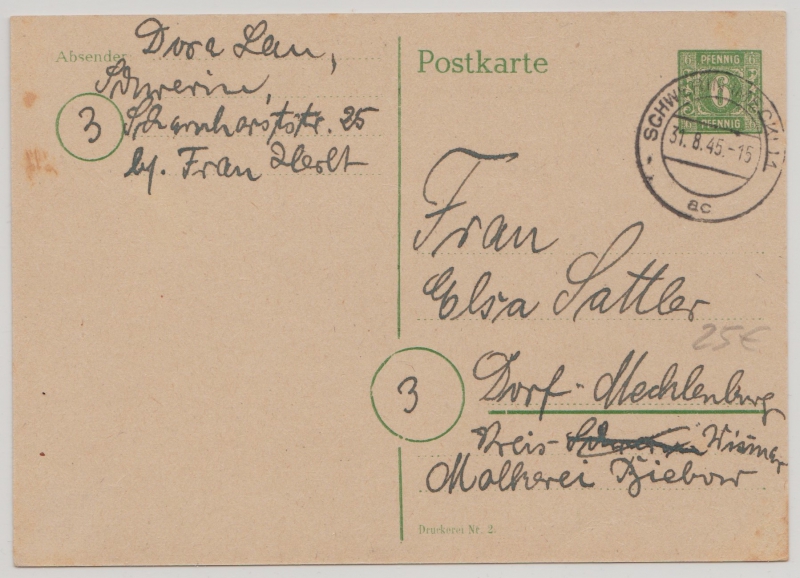 Absender: Dora Lau,
Schwerin,
3 Scharnhorststr. 25
bj. Frau Herlt
Postkarte
6 PFENNIG 6
6
6 PFENNIG 6
SCHWERIN (MECKL) 1
31.8.45.-15
ac
Frau
Elsa Sattler
25€
3 Dorf-Mecklenburg
Kreis Wismar
Molkerei Ziebow
Druckerei Nr. 2.